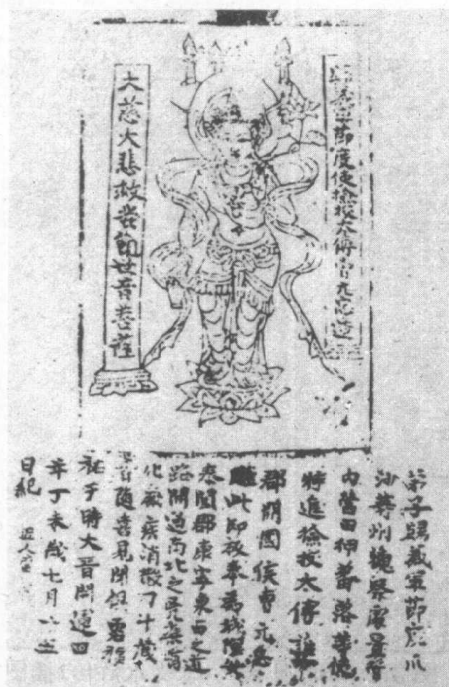 歸義軍節度使檢校太傅曹元忠造
大慈大悲救苦觀世音菩薩
弟子歸義軍節度瓜
沙等州觀察處置管
內營田押蕃落等使
特進檢校太傅譙
郡開國侯曹元忠
雕此印板奉為城隍安
泰闔郡康寧東西之道
路開通南北之兇渠順
化厲疾消散刁斗藏
音隨喜見聞俱霑福
祐于時大晉開運四
年丁未歲七月十五
日紀 匠人